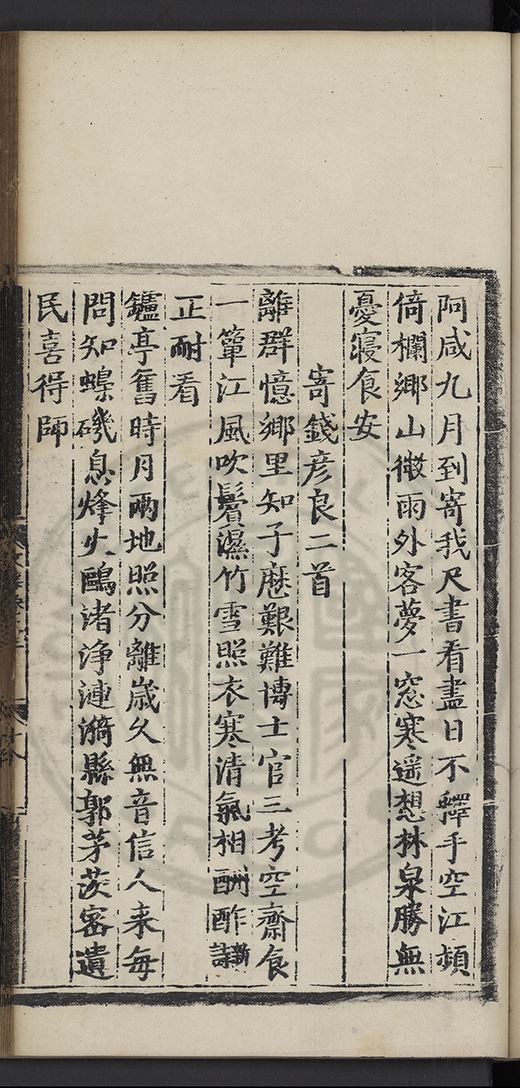 阿咸九月到寄我尺書看盡日不釋手空江頻
倚欄鄉山微雨外客夢一窓寒遥想林泉勝無
憂寢食安
寄錢彦良二首
離群憶鄉里知子歷艱難博士官三考空齋食
一簞江風吹鬢濕竹雪照衣寒清氣相酬酢新詩
正耐看
鑪亭舊時月兩地照分離歳久無音信人来每
問知蟂磯息烽火鷗渚浄漣漪縣郭茅茨宻遺
民喜得師